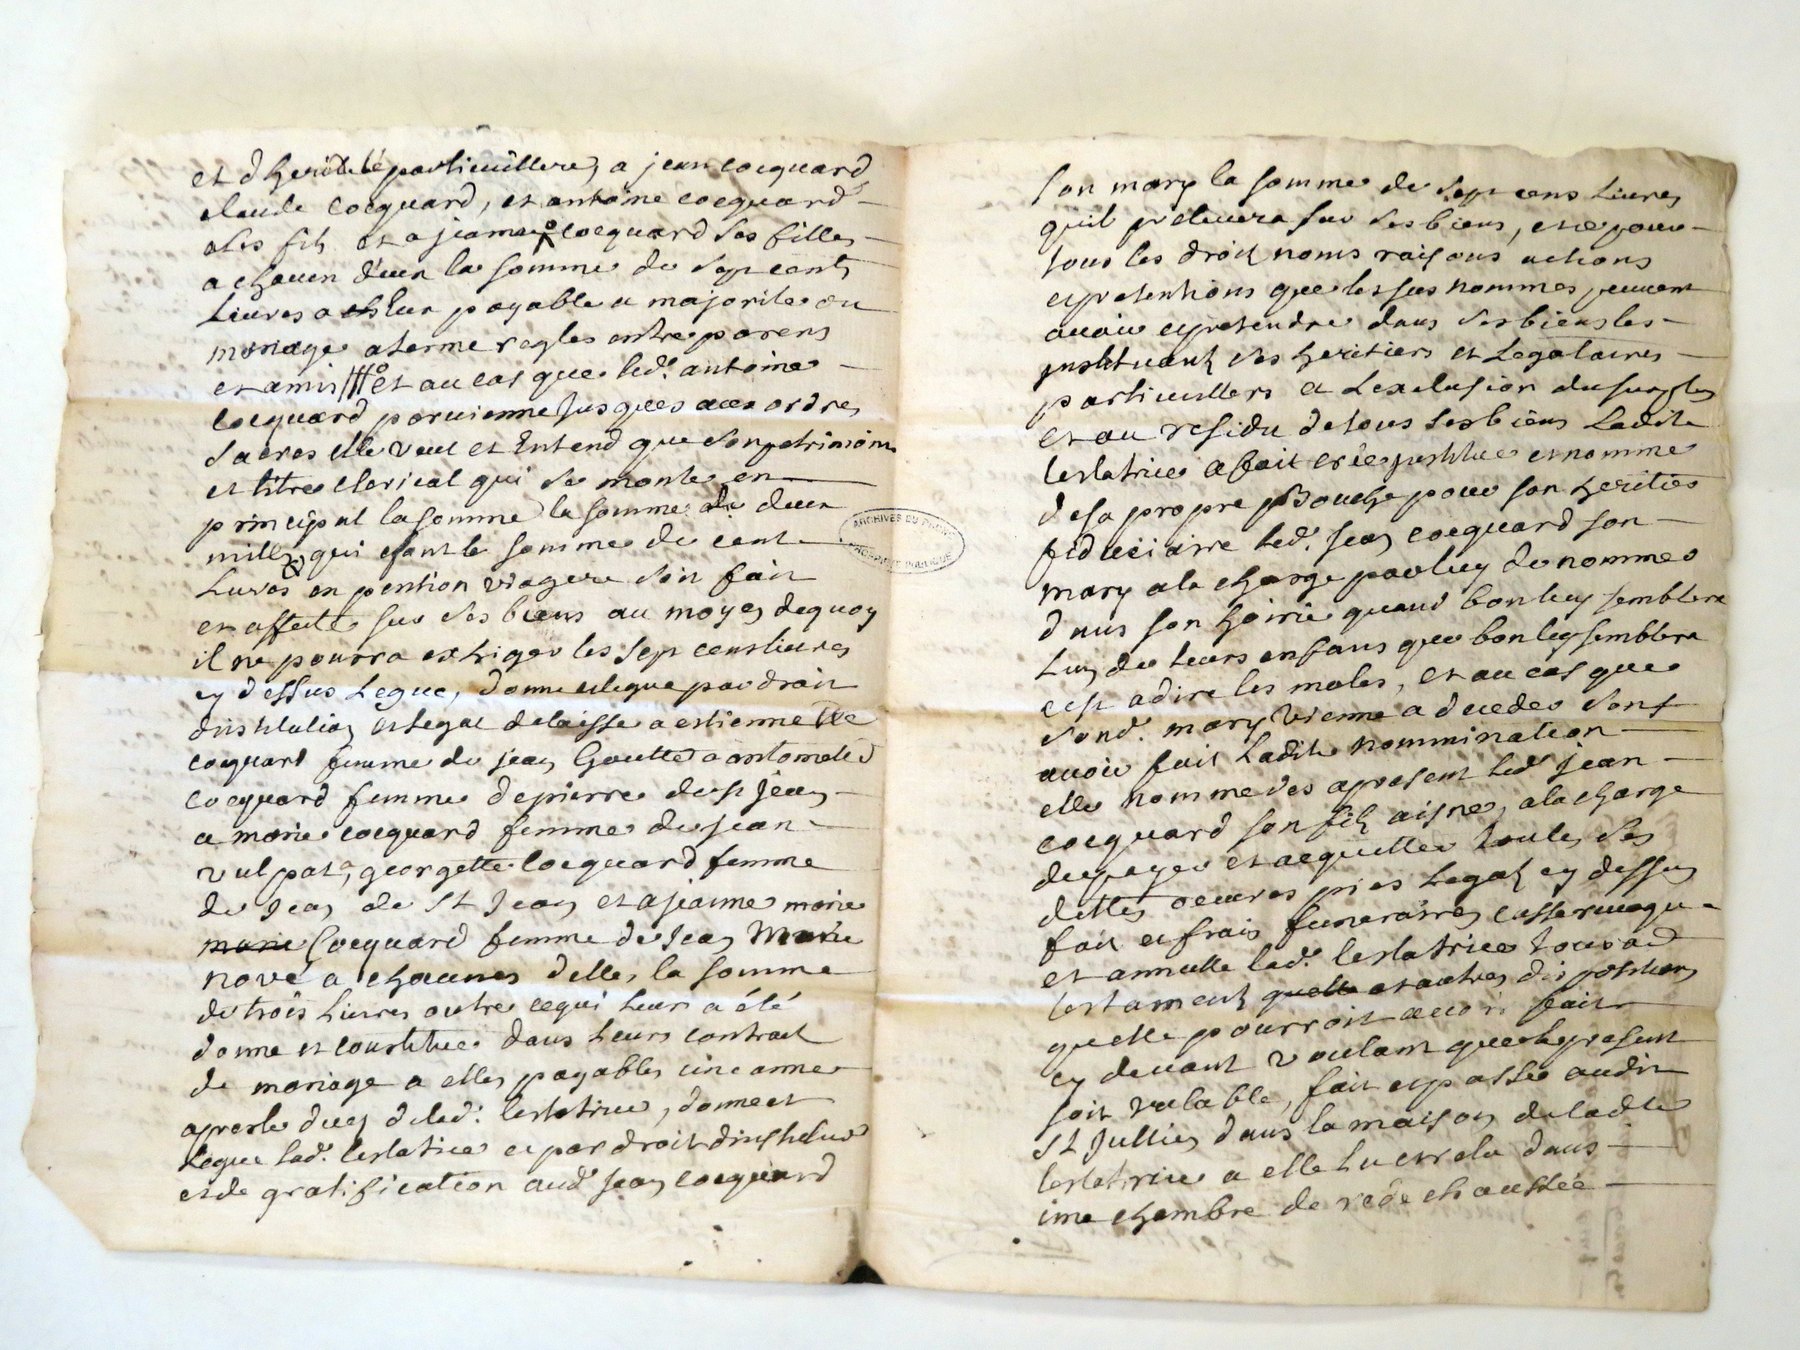 et d heridité particuillere, a jean cocquard
claude cocquard, et antoine cocquard
ses fils et a jeanne cocquard ses filles
a chacun deux la somme de sept cents
Livres a eslus payable a majorite ou
mariage a terme regles entre parens
et amis et au cas que led. antoine
Cocquard parvienne jusques aux ordres
sacres elle veut et Entend que son patrimoine
et titre clerical qui se monte en
principal la somme la somme de deux
mill, qui est la somme de cent
Livres en pention viagere soit fait
et affecté sur ses biens au moyen dequoy
il ne pourra exhiger les sept cens livres
cy dessus Legue, donne et legue par droit
dinstitution et legat delaisse a estiennette
cocquard femme de jean Goutte a antoinete
cocquard femme de pierre de st jean
a marie cocquard femme de jean
vulpat, georgette Cocquard femme
de jean de St Jean et a jeanne marie
marie Cocquard femme de Jean Marie
nové a chacunes delles la somme
de trois livres outre ce qui leur a été
donné et constitué dans leurs contract
de mariage a elles payables une anné
apres le deces de lad. testatrice, donne et
Legue lad. testatrice et par droit dinstitution
et de gratification aud. jean cocquard
son mary la somme de sept cens Livres
quil prelevera sur ses biens, et ce pour
tous les droit noms raisons actions
et pretentions que les sus nommes peuvent
avoir et pretendre dans ses biens les
instituant ses heritiers et Legataires
particulliers a Lexclusion du surplus
Et au residu de tous ses biens Ladite
testatrice a fait créé institue et nomme
de sa propre Bouche pour son heritier
fiduciaire led. jean cocquard son
mary a la charge par luy de nommer
dans son hoirie quand bon luy semblera
Lun de leurs enfans que bon luy semblera
cest a dire les males, et au cas que
sond. mary vienne a deceder sans
avoir fait Ladite nommination
elle nomme des apresent led. jean
cocquard son fils aisne, a la charge
de payer et acquitter toutes ses
dettes oeuvres pies Legats cy dessus
fait et frais funeraires casse revoque
et annulle lad. testatrice tous autres
testaments quelle et autres dispositions
quelle pourroit avoir fait
cy devant voulant que le present
soit valable, fait et passé audit
St Jullien dans la maison de ladite
testatrice a elle Lu et relu dans
une chambre de rede chaussée
ARCHIVES DU